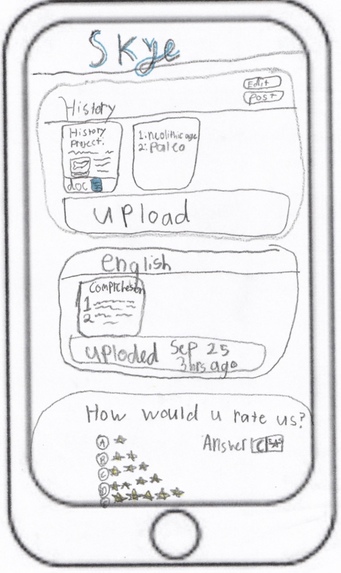 Skye
Edit
Post
History
History
Project.
doc
1. neolithic age
2. Paleo
upload
english
Comprehension
1
2
uploded Sep 25
3 hrs ago
How would u rate us?
A
B
C
D
Answer C